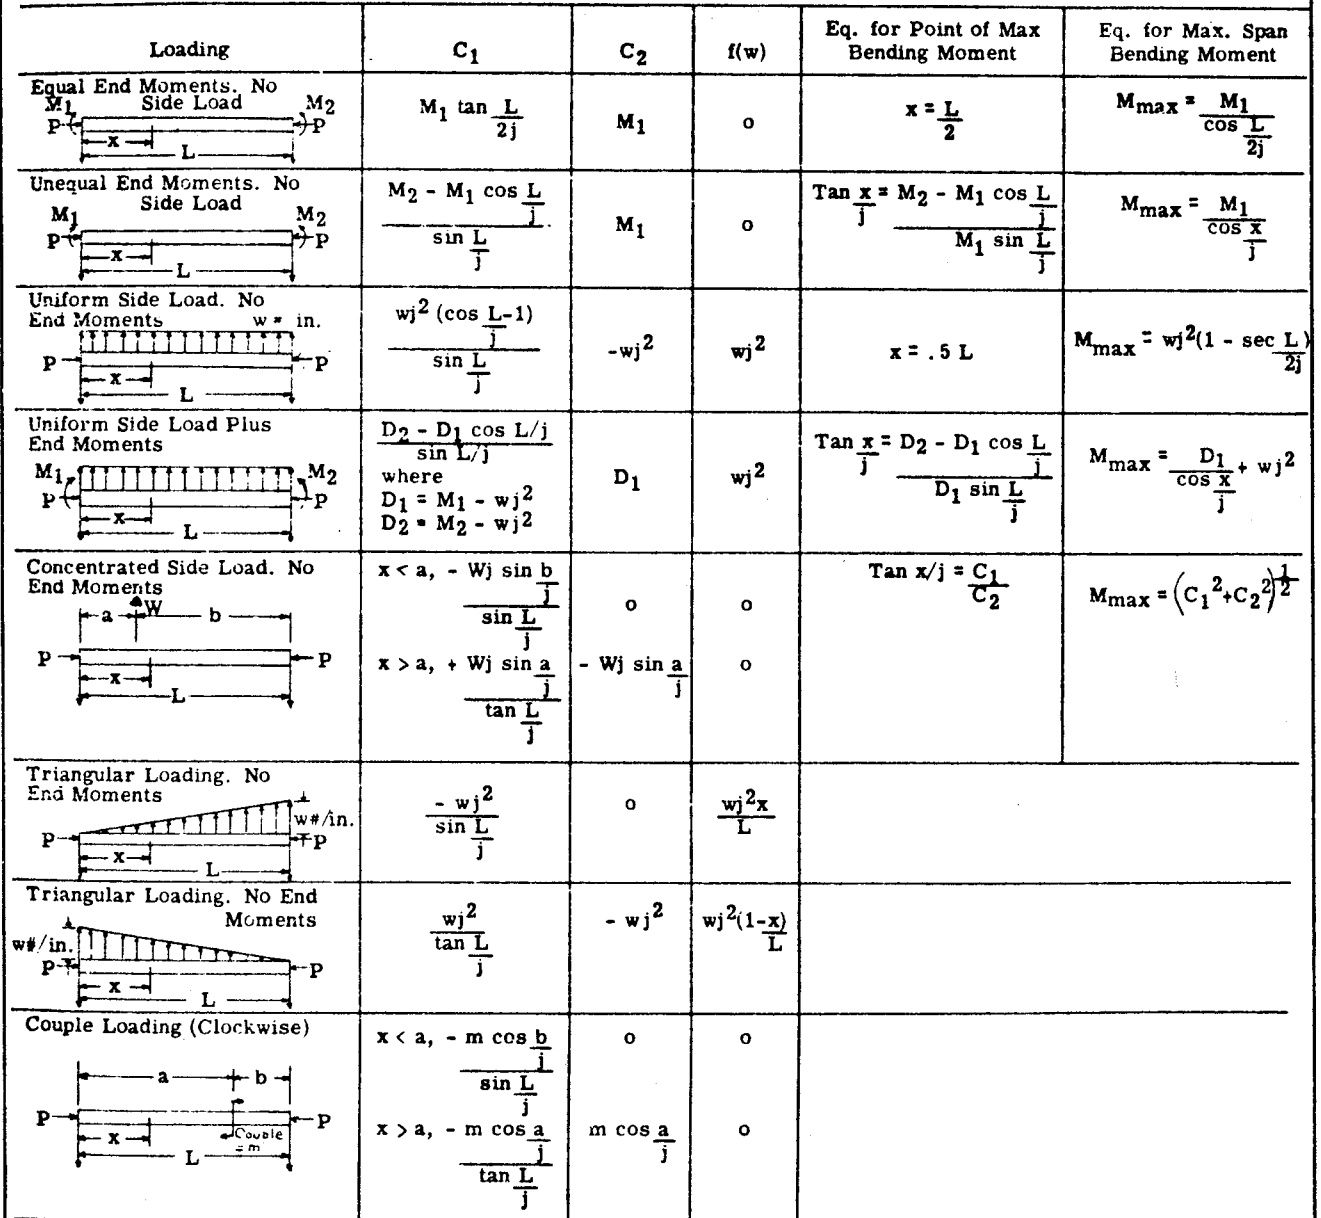 Loading C₁ C₂ f(w) Eq. for Point of Max Bending Moment Eq. for Max. Span Bending Moment
Equal End Moments. No
Side Load
M₁ M₂
P P
x
L
M₁ tan L/2j
M₁
o
x = L/2
Mmax = M₁/cos L/2j
Unequal End Moments. No
Side Load
M₁ M₂
P P
x
L
M₂ - M₁ cos L/j
sin L/j
M₁
o
Tan x/j = M₂ - M₁ cos L/j
M₁ sin L/j
Mmax = M₁/cos x/j
Uniform Side Load. No
End Moments w = in.
P P
x
L
wj² (cos L/j-1)
sin L/j
-wj²
wj²
x = .5 L
Mmax = wj²(1 - sec L/2j)
Uniform Side Load Plus
End Moments
M₁ M₂
P P
x
L
D₂ - D₁ cos L/j
sin L/j
where
D₁ = M₁ - wj²
D₂ = M₂ - wj²
D₁
wj²
Tan x/j = D₂ - D₁ cos L/j
D₁ sin L/j
Mmax = D₁/cos x/j + wj²
Concentrated Side Load. No
End Moments
W
a b
P P
x
L
x < a, - Wj sin b/j
sin L/j
o
o
x > a, + Wj sin a/j
tan L/j
- Wj sin a/j
o
Tan x/j = C₁/C₂
Mmax = (C₁²+C₂²)^1/2
Triangular Loading. No
End Moments
w#/in.
P P
x
L
- wj²
sin L/j
o
wj²x/L
Triangular Loading. No End
Moments
w#/in.
P P
x
L
wj²
tan L/j
- wj²
wj²(1-x/L)
Couple Loading (Clockwise)
a b
P P
x
Couple
= m
L
x < a, - m cos b/j
sin L/j
o
o
x > a, - m cos a/j
tan L/j
m cos a/j
o